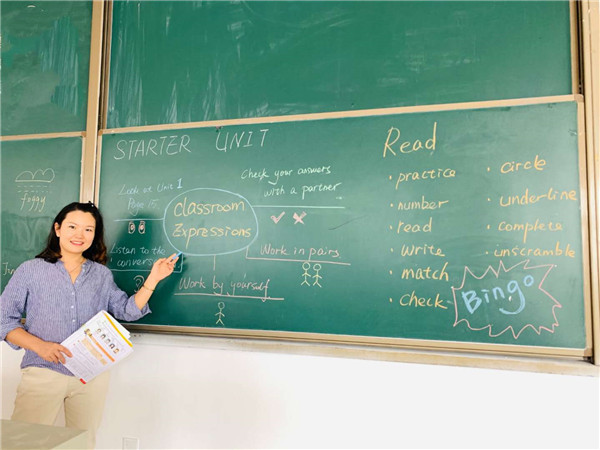 STARTER UNIT
foggy
Look at Unit 1
Page 15
Check your answers
with a partner
classroom
Expressions
Listen to the
conversa
Work in pairs.
Work by yourself
Read
· practice
· number
· read
· write
· match
· check
· circle
· underline
· complete
· unscramble
Bingo